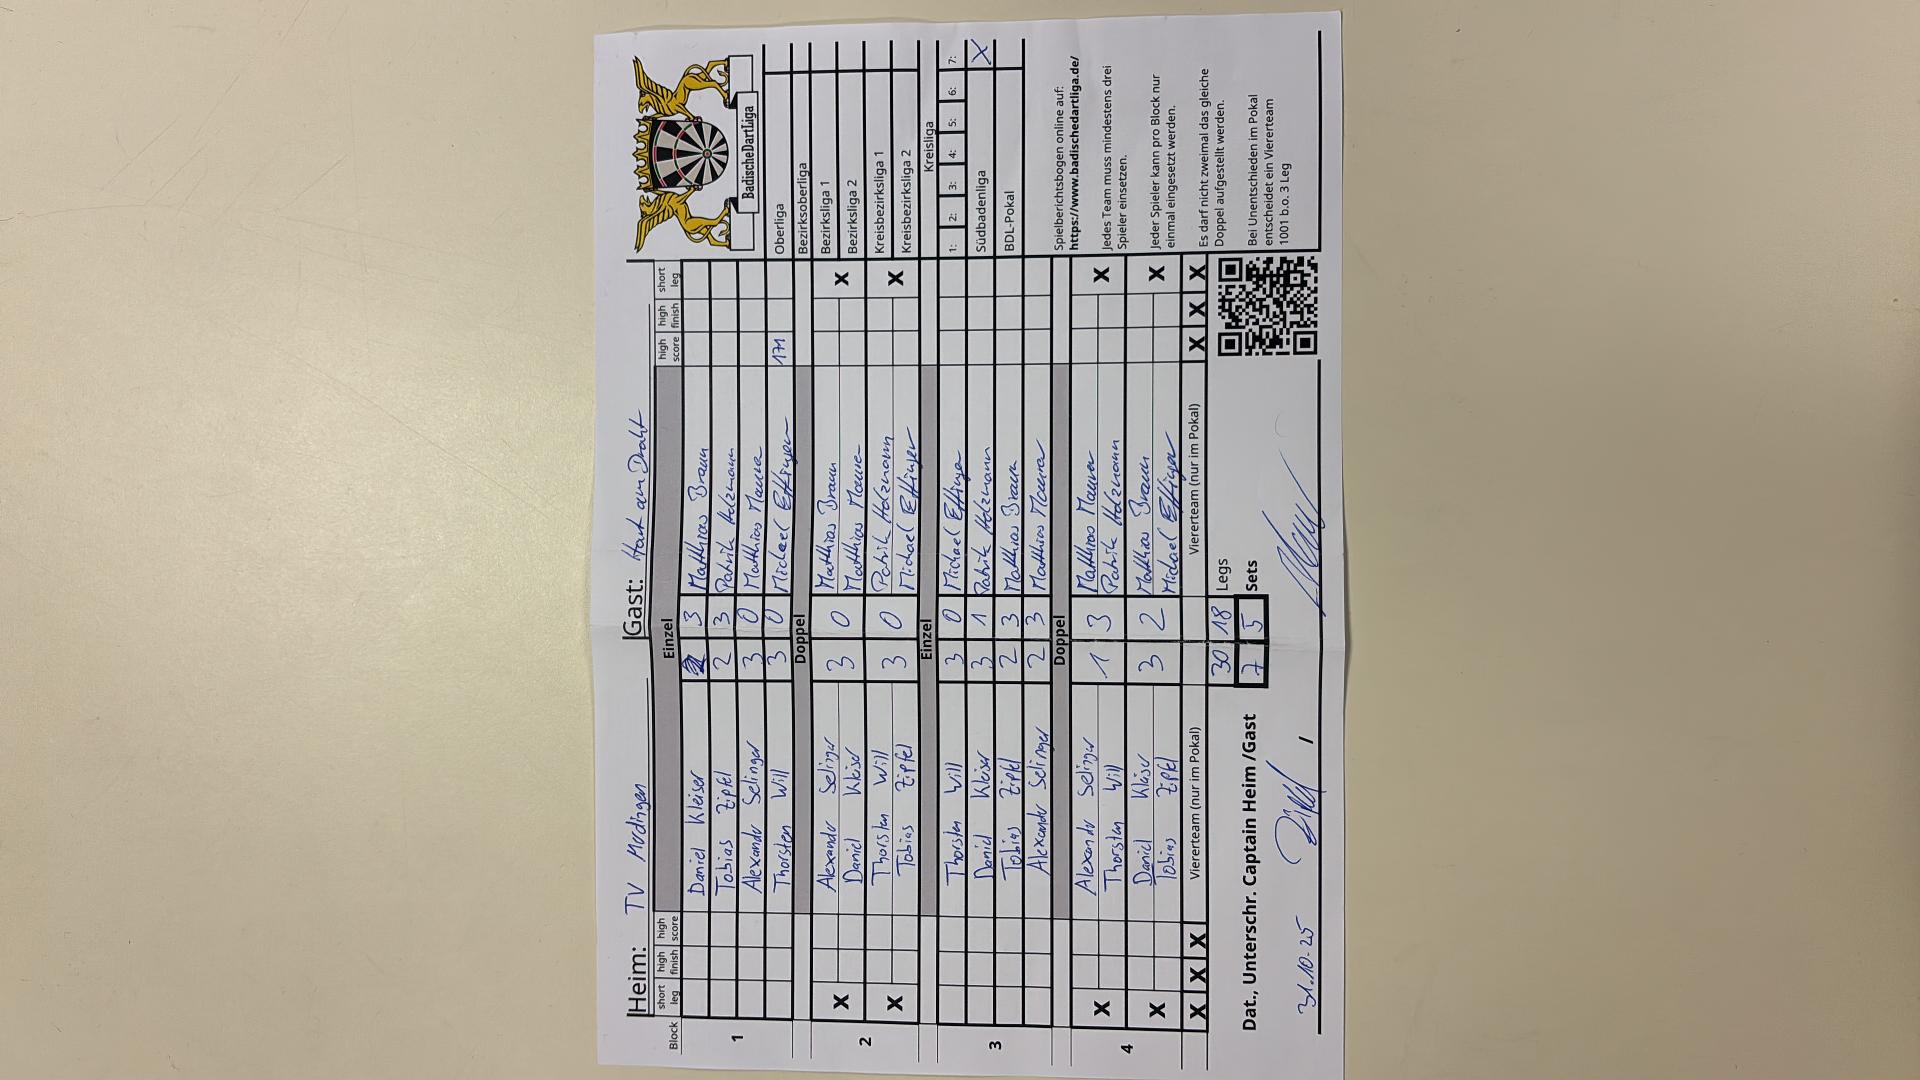 Heim: TV Merdingen Gast: Hart am Draht
BadischeDartLiga
Block short leg high finish high score Einzel high score high finish short leg
1
Daniel Kleiser 3 Matthias Braun
Tobias Zipfel 2 3 Patrik Holzmann
Alexander Selinger 3 0 Matthias Maurer
Thorsten Will 3 0 Michael Effinger 171
Doppel
2
X Alexander Selinger 3 0 Matthias Braun X
Daniel Kleiser Matthias Maurer
X Thorsten Will 3 0 Patrik Holzmann X
Tobias Zipfel Michael Effinger
Einzel
3
Thorsten Will 3 0 Michael Effinger
Daniel Kleiser 3 1 Patrik Holzmann
Tobias Zipfel 2 3 Matthias Braun
Alexander Selinger 2 3 Matthias Maurer
Doppel
4
X Alexander Selinger 1 3 Matthias Maurer X
Thorsten Will Patrik Holzmann
X Daniel Kleiser 3 2 Matthias Braun X
Tobias Zipfel Michael Effinger
X X X Viererteam (nur im Pokal) Viererteam (nur im Pokal) X X X
30 18 Legs
7 5 Sets
Dat., Unterschr. Captain Heim /Gast
31.10.25 Zipfel /
Oberliga
Bezirksoberliga
Bezirksliga 1
Bezirksliga 2
Kreisbezirksliga 1
Kreisbezirksliga 2
Kreisliga
1: 2: 3: 4: 5: 6: 7:
Südbadenliga X
BDL-Pokal
Spielberichtsbogen online auf:
https://www.badischedartliga.de/
Jedes Team muss mindestens drei
Spieler einsetzen.
Jeder Spieler kann pro Block nur
einmal eingesetzt werden.
Es darf nicht zweimal das gleiche
Doppel aufgestellt werden.
Bei Unentschieden im Pokal
entscheidet ein Viererteam
1001 b.o. 3 Leg